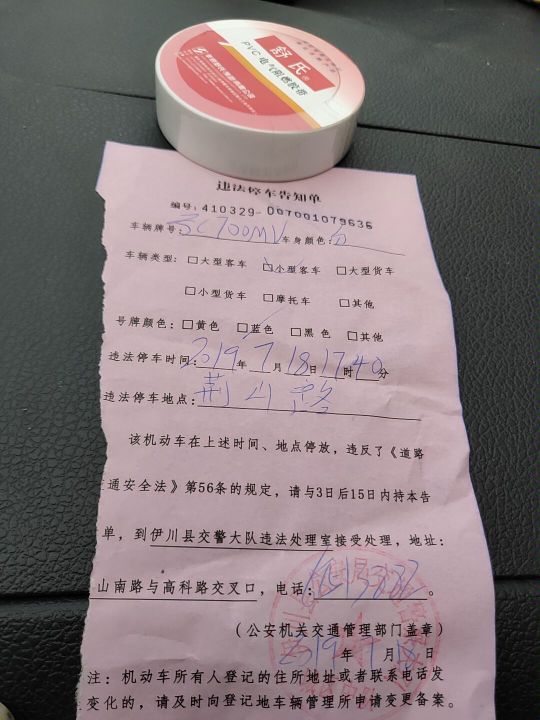 舒氏®
PVC 电气阻燃胶带
违法停车告知单
编号: 410329-007001079636
车辆牌号: C700MV 车身颜色: 白
车辆类型: □大型客车 □小型客车 □大型货车
□小型货车 □摩托车 □其他
号牌颜色: □黄色 □蓝色 □黑色 □其他
违法停车时间: 2019年7月18日17时40分
违法停车地点: 荆山路
该机动车在上述时间、地点停放，违反了《道路
通安全法》第56条的规定，请与3日后15日内持本告
单，到伊川县交警大队违法处理室接受处理，地址:
山南路与高科路交叉口，电话: 。
(公安机关交通管理部门盖章)
2019年7月18日
注: 机动车所有人登记的住所地址或者联系电话发
变化的，请及时向登记地车辆管理所申请变更备案。